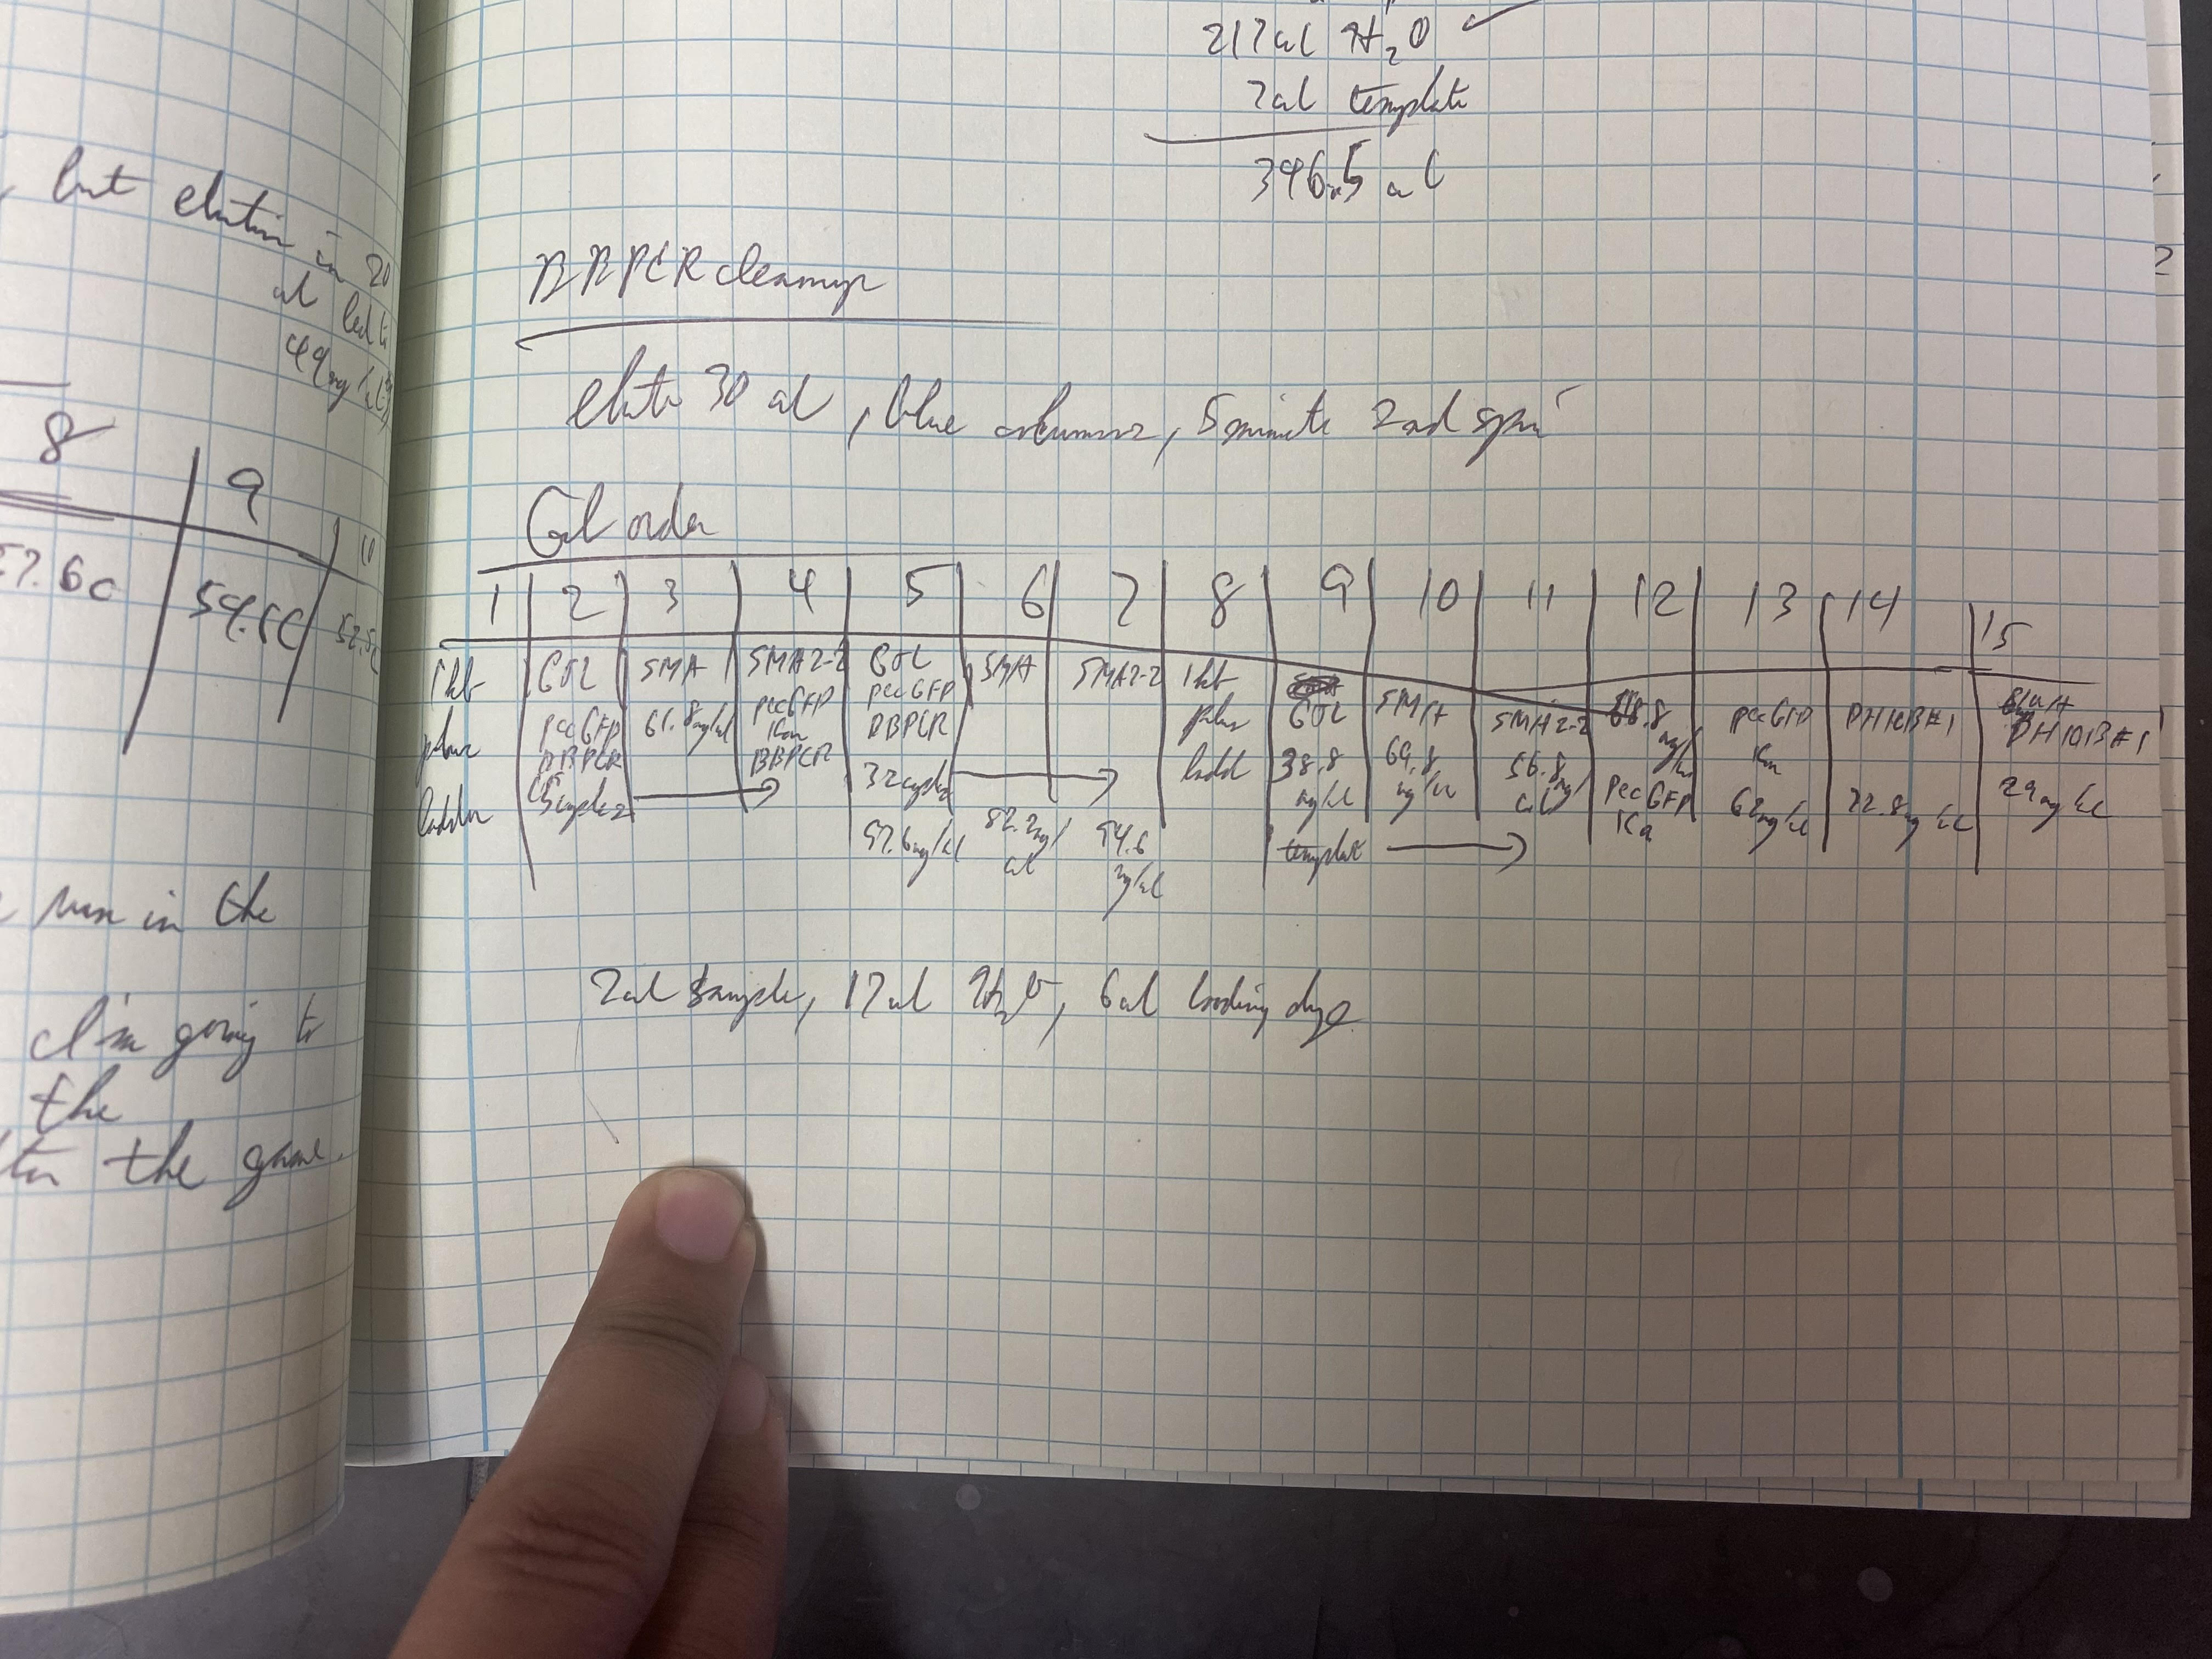 , but elution in 20
ul led to
49ng/ul)
8 9 10
57.6C 59.5C 52.5C
run in the
I'm going to
the
the game.
217ul H2O ✓
2ul template
396.5 ul
BBPCR cleanup
elute 30 ul, blue columns, 5 minute 2nd spin
Gel order
1 2 3 4 5 6 7 8 9 10 11 12 13 14 15
1kb
plus
ladder
GOL
pecGFP
BBPCR
15 cycles
SMA
61.8ng/ul
SMA2-2
pecGFP
Kan
BBPCR
GOL
pecGFP
BBPCR
32 cycles
57.6ng/ul
SMA
82.2ng/
ul
SMA2-2
54.6
ng/ul
1kb
plus
ladd
GOL
38.8
ng/ul
template
SMA
69.8
ng/ul
SMA2-2
56.8ng/
ul
68.8
ng/ul
pecGFP
Ka
pecGFP
Kan
62ng/ul
DH10B#1
22.8ng/ul
DH10B#1
29ng/ul
2ul sample, 17ul H2O, 6ul loading dye